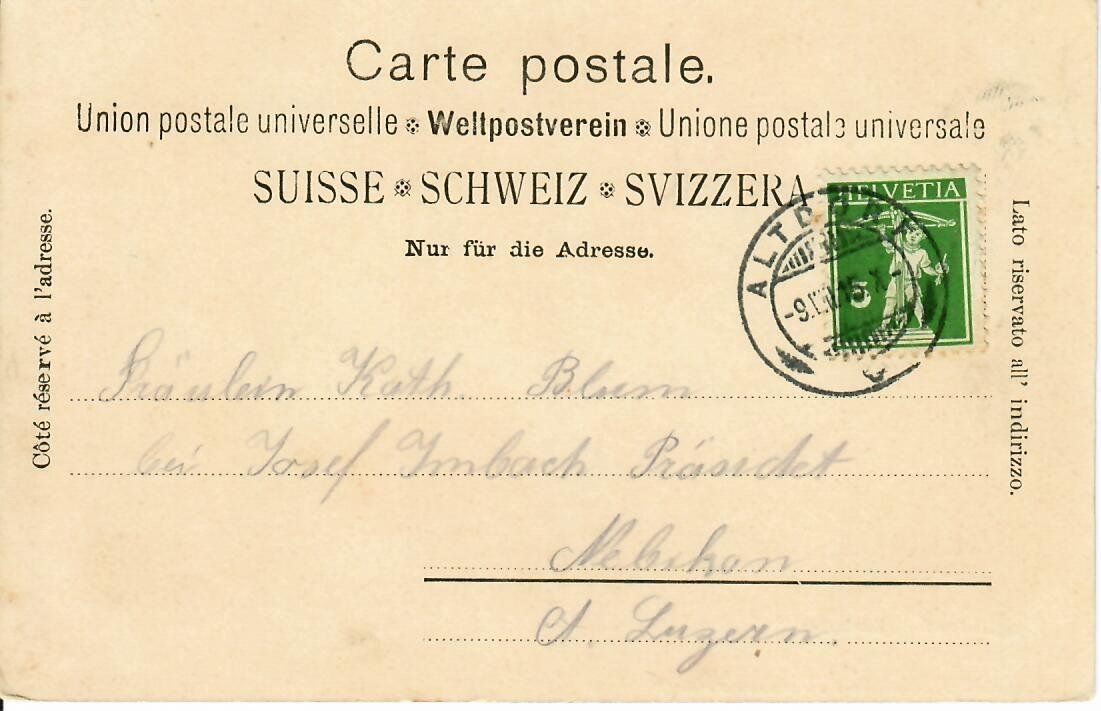 Carte postale.
Union postale universelle ⁘ Weltpostverein ⁘ Unione postale universale
SUISSE ⁘ SCHWEIZ ⁘ SVIZZERA
Nur für die Adresse.
HELVETIA
5
ALTDORF
Côté réservé à l'adresse.
Lato riservato all' indirizzo.
Fräulein Kath. Blum
bei Josef Imbach Präsidet
Nebikon
Ct. Luzern.